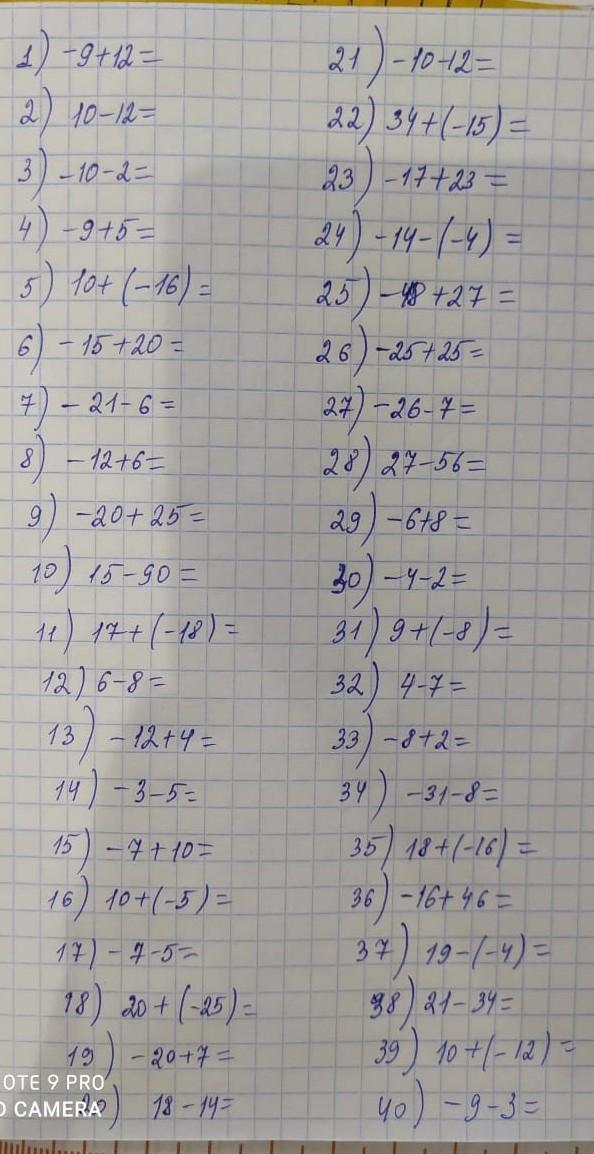 1) -9+12=
2) 10-12=
3) -10-2=
4) -9+5=
5) 10+(-16)=
6) -15+20=
7) -21-6=
8) -12+6=
9) -20+25=
10) 15-90=
11) 17+(-18)=
12) 6-8=
13) -12+4=
14) -3-5=
15) -7+10=
16) 10+(-5)=
17) -7-5=
18) 20+(-25)=
19) -20+7=
20) 18-14=
21) -10-12=
22) 34+(-15)=
23) -17+23=
24) -14-(-4)=
25) -48+27=
26) -25+25=
27) -26-7=
28) 27-56=
29) -6+8=
30) -4-2=
31) 9+(-8)=
32) 4-7=
33) -8+2=
34) -31-8=
35) 18+(-16)=
36) -16+46=
37) 19-(-4)=
38) 21-34=
39) 10+(-12)=
40) -9-3=
OTE 9 PRO
CAMERA